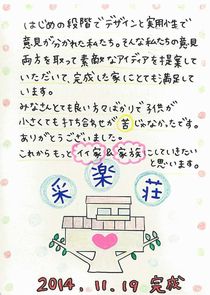 はじめの段階でデザインと実用性で
意見が分かれた私たち。そんな私たちの意見
両方を取って素敵なアイディアを提案して
いただいて、完成した家にとても満足して
います。
みなさんとても良い方々ばかりで子供が
小さくても打ち合わせが苦じゃなかったです。
ありがとうございました。
これからもっとイイ家&家族にしていきたい
と思います。
采楽荘
2014.11.19 完成